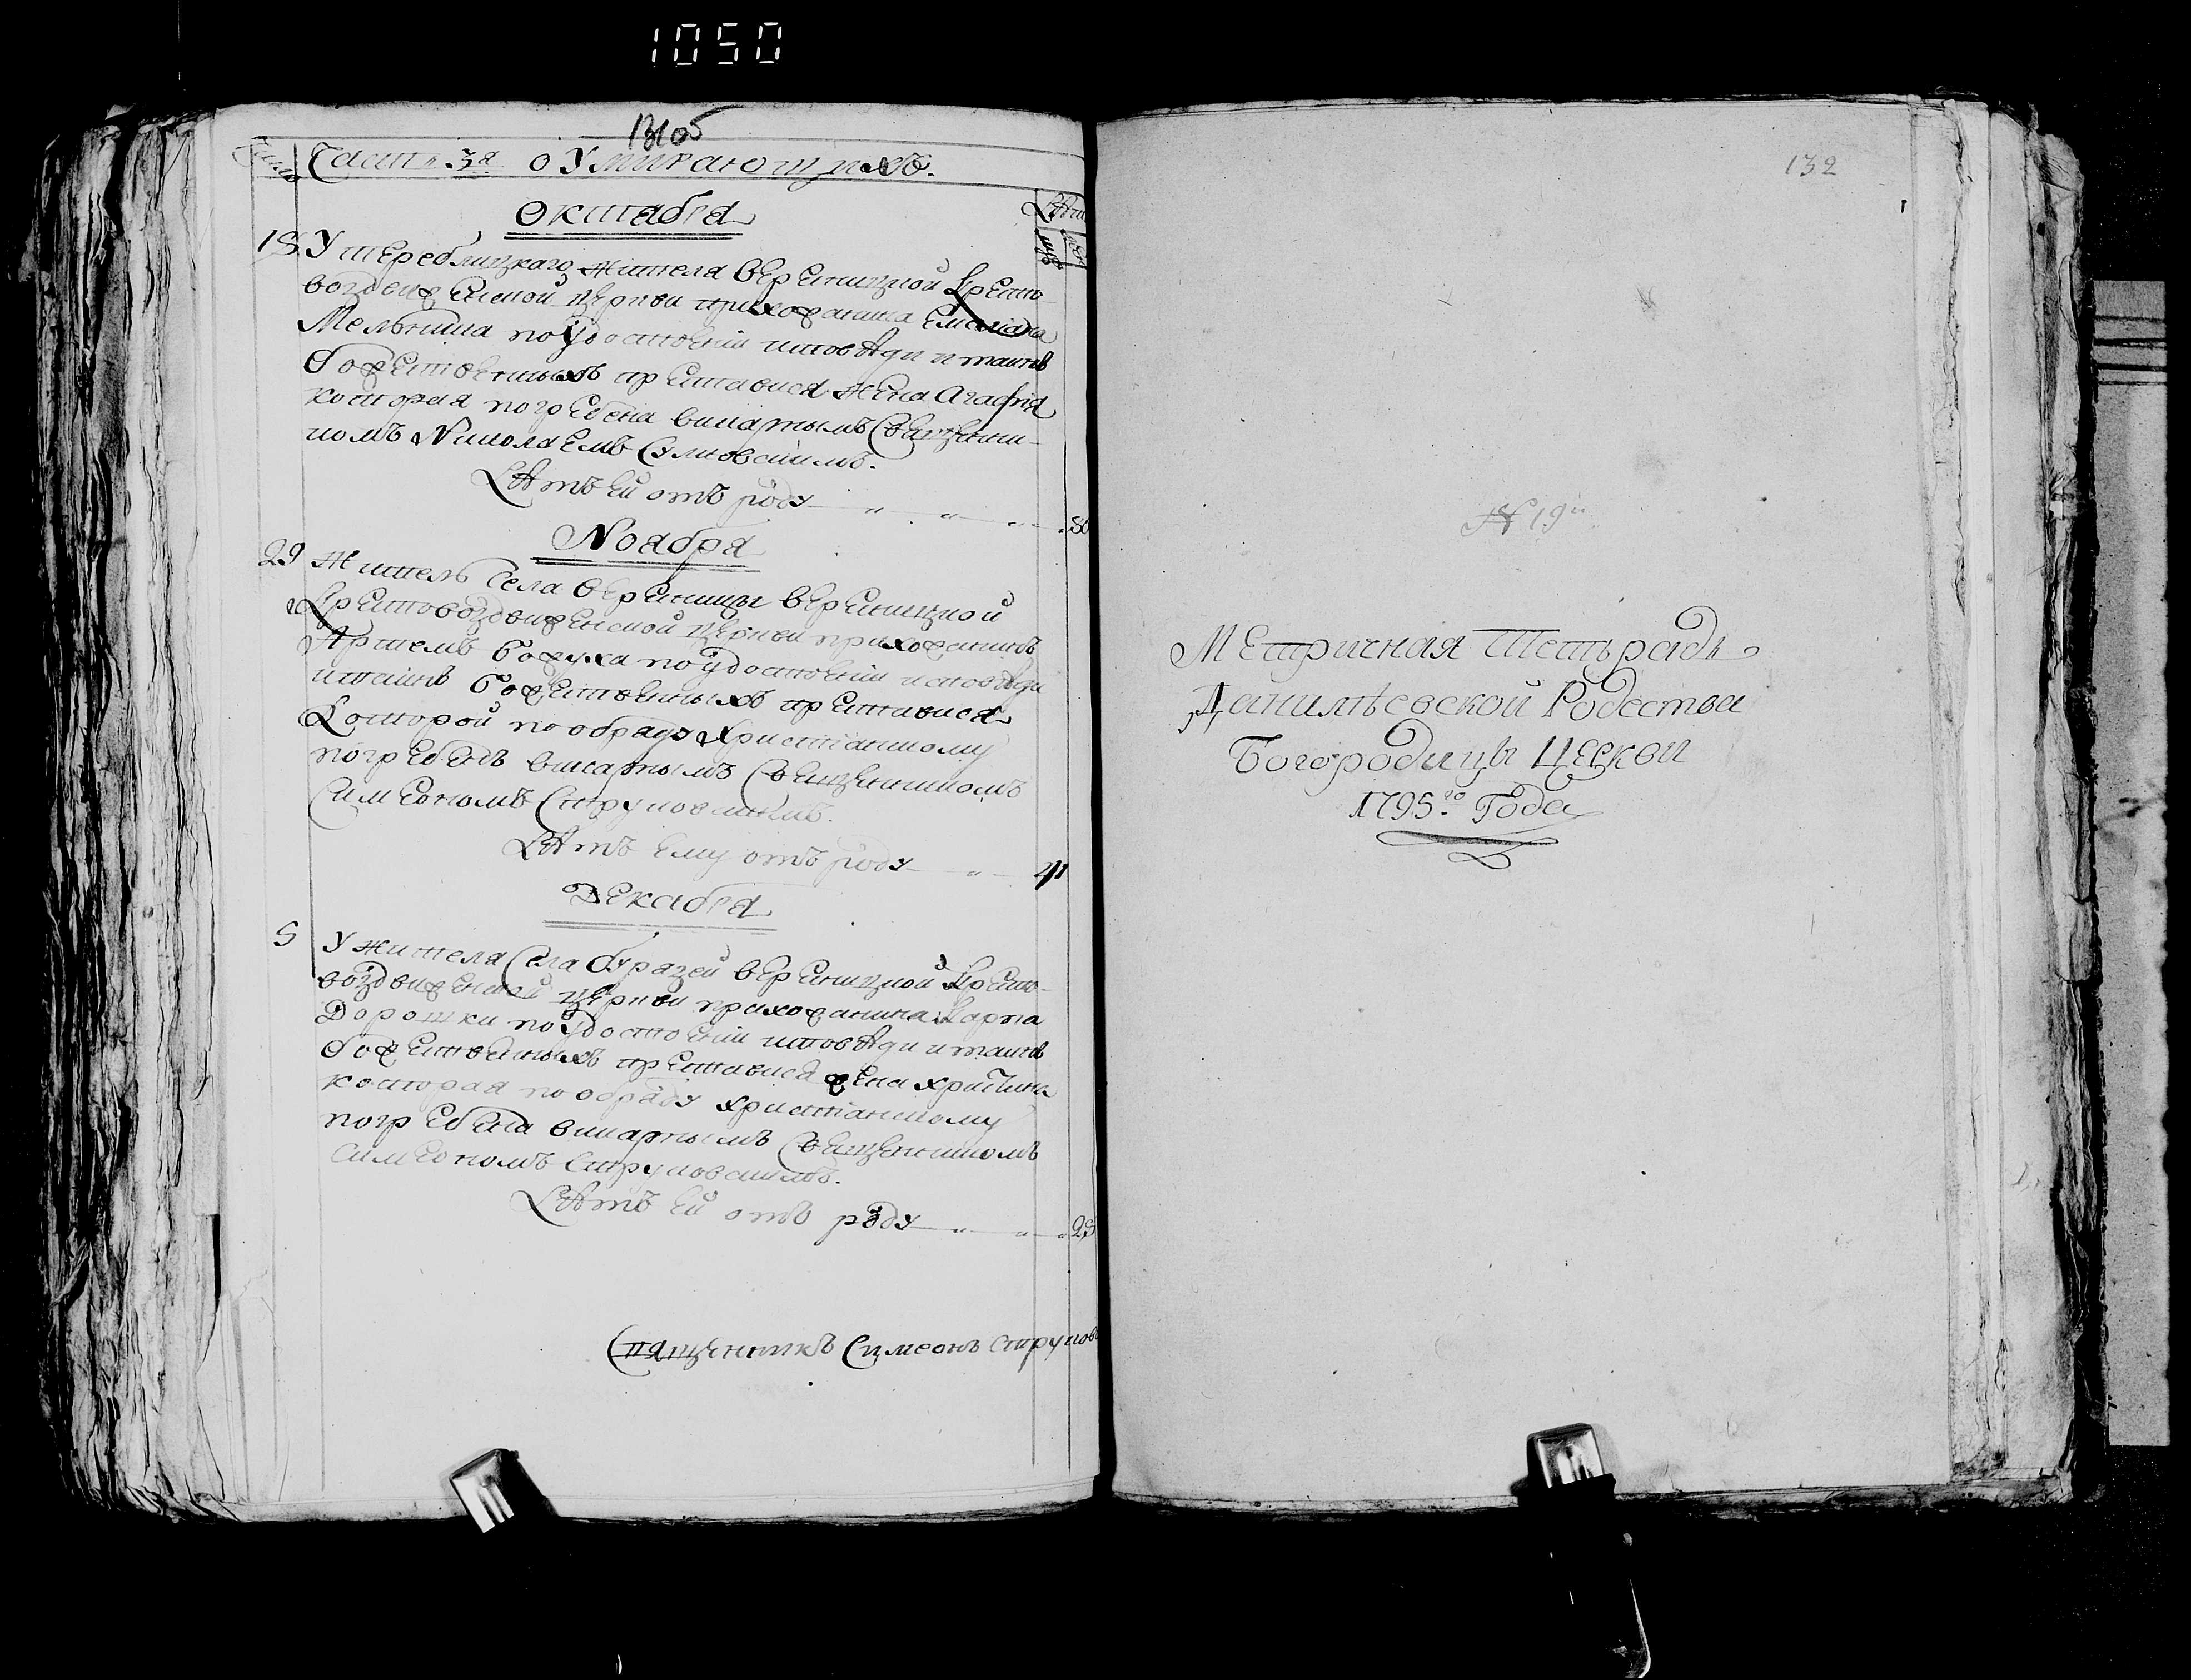 1050
131об
Число
Часть 3я о Умирающихъ.
Лѣта
муж жен
Октабра
18 У тереблицкаго жителя вереницкой Кресто
воздвиженской церкви прихожанина Емелiана
Мелника по удостоенiи исповѣди и таинъ
божественныхъ преставися жена Агафiа
которая погребена викарнымъ Священни
комъ Николаемъ
Лѣтъ ей отъ роду 80
Ноабра
29 Житель Села Вереницы вереницкой
Крестовоздвиженской церкви прихожанинъ
Артемъ Божука по удостоенiи исповѣди
и таинъ божественныхъ преставися
которой по обраду християнскому
погребенъ викарнымъ Священникомъ
Симеономъ Струковскимъ.
Лѣтъ ему отъ роду 41
Декабра
5 У жителя Села Бурязей вереницкой Кресто
воздвиженской церкви прихожанина Карпа
Дорошки по удостоенiи исповѣди и таинъ
божественныхъ преставися жена Христина
которая по обраду христiанскому
погребена викарнымъ Священникомъ
Симеономъ Струковскимъ.
Лѣтъ ей отъ роду 25
Священникъ Симеонъ Струков
132
N 19й
Метричная Тетърадь
Данилѣевской Родества
Богородицы Церкви
1795го Года